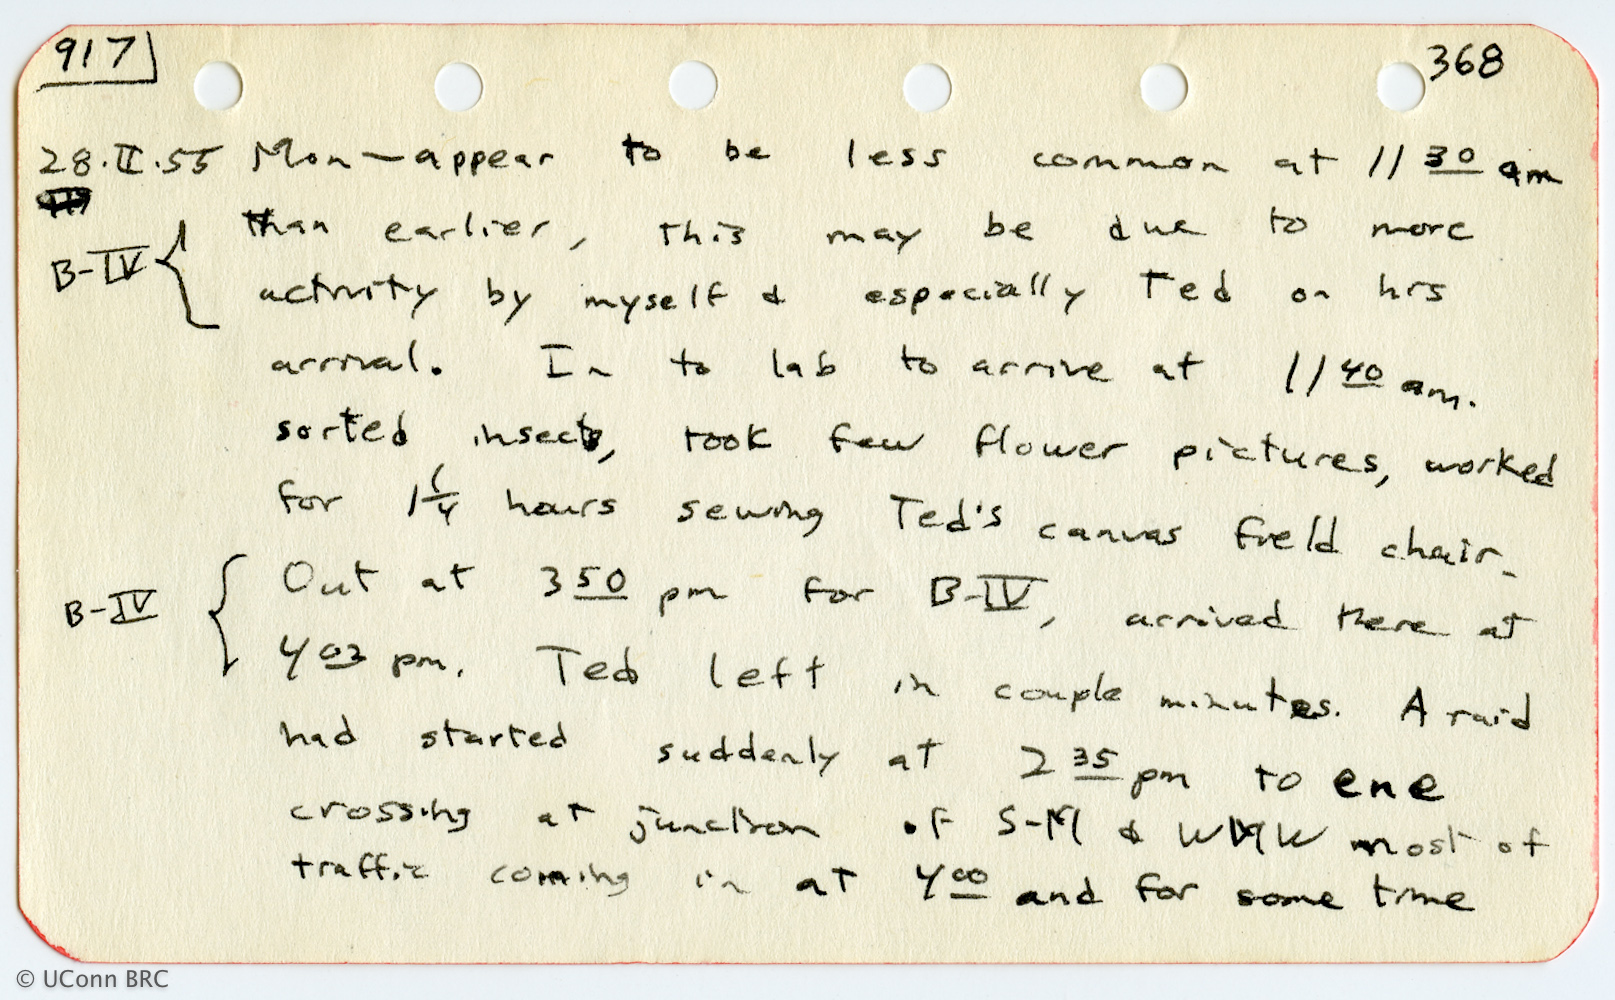 917 368
28.II.55 Mon—appear to be less common at 11 30 am
than earlier, this may be due to more
B-IV { activity by myself & especially Ted on his
arrival. In to lab to arrive at 11 40 am.
sorted insects, took few flower pictures, worked
for 1 1/4 hours sewing Ted's canvas field chair.
B-IV { Out at 3 50 pm for B-IV, arrived there at
4 03 pm. Ted left in couple minutes. A raid
had started suddenly at 2 35 pm to ene
crossing at junction of S-M & WMW most of
traffic coming in at 4 00 and for some time
© UConn BRC